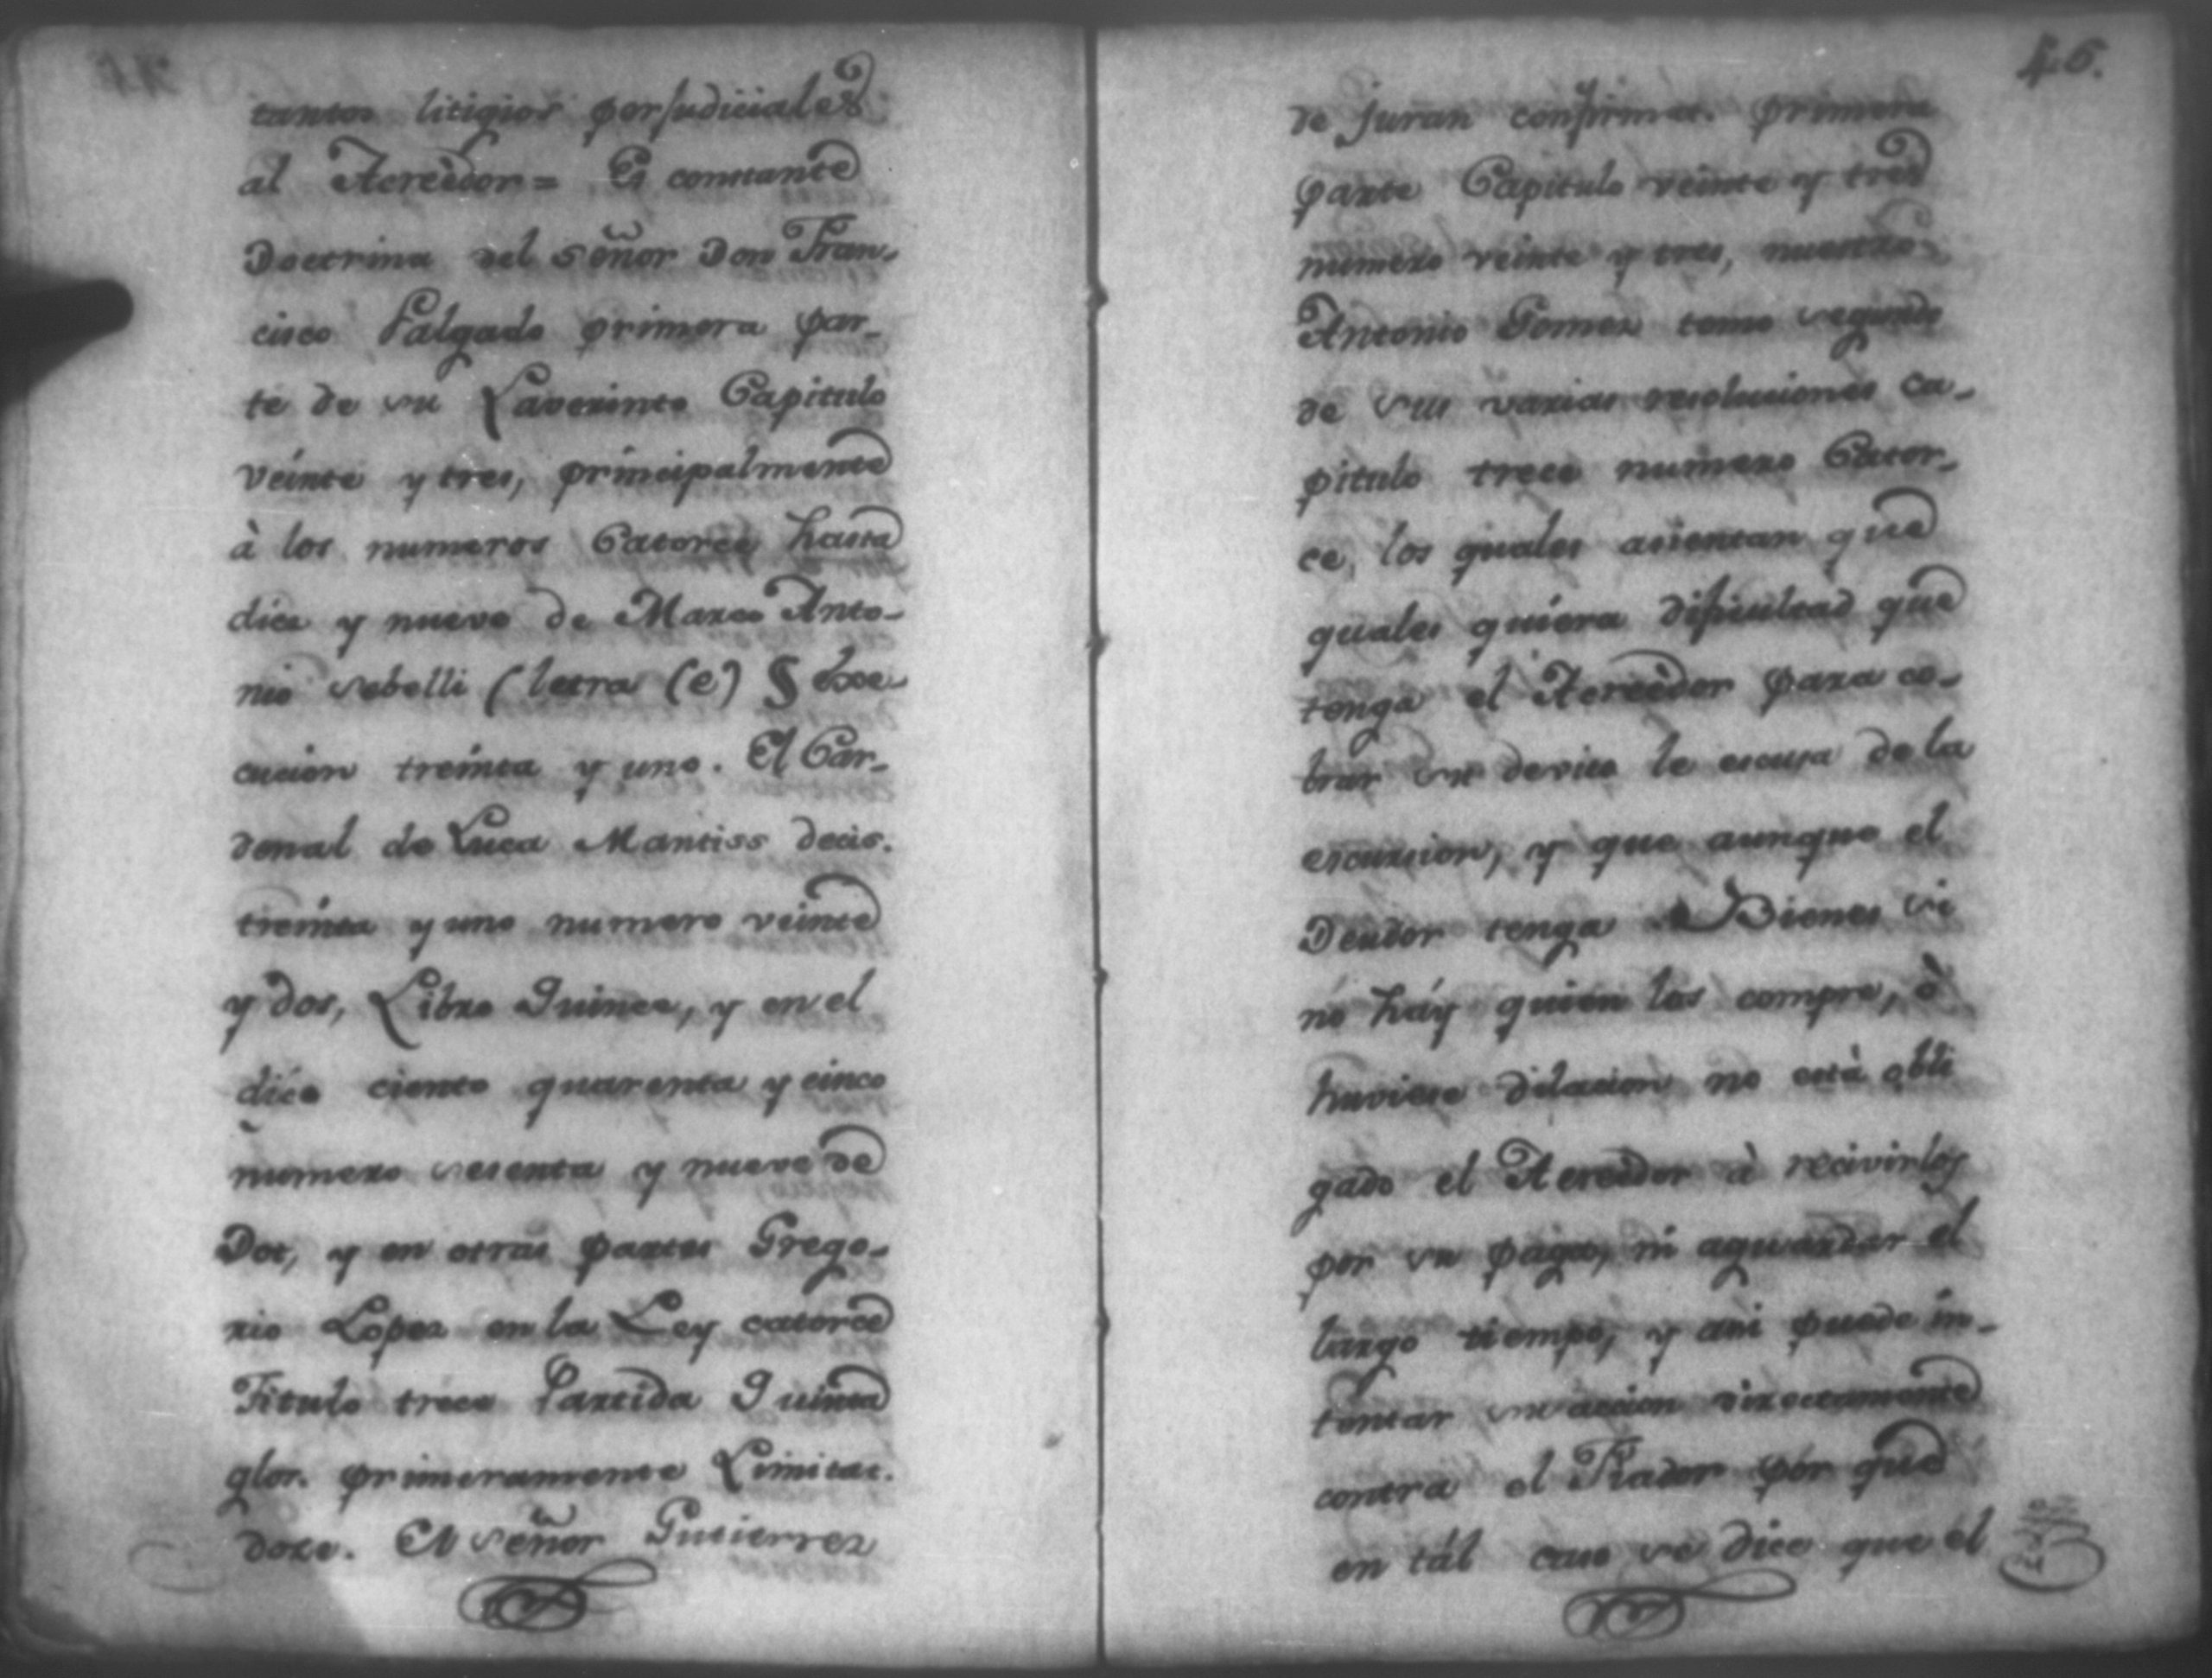 tantos litigios perjudiciales
al Acreèdor = Es constante
Doctrina del señor Don Fran-
cisco Salgado primera par-
te de su Laverinto Capitulo
veinte y tres, principalmente
à los numeros Catorce, hasta
diez y nueve de Marco Anto-
nio Sabelli (letra (e) § Exe-
cucion treinta y uno. El Car-
denal de Luca Mantiss decis.
treinta y uno numero veinte
y dos, Libro Quince, y en el
dice ciento quarenta y cinco
numero sesenta y nueve de
Dot, y en otras partes Grego-
rio Lopez en la Ley catorce
Titulo trece Partida Quinta
glos. primeramente Limitat.
doze. El señor Gutierrez
46.
de juran confirmat. primera
parte Capitulo veinte y tres
numero veinte y tres, nuestro
Antonio Gomez tomo segundo
de sus varias resoluciones Ca-
pitulo trece numero Cator-
ce, los quales asientan que
quales quiera dificultad que
tenga el Acreèdor para co-
brar su devito le escusa de la
escursion, y que aunque el
Deudor tenga Bienes si
no háy quien los compre, ò
huviese dilacion no està obli
gado el Acreèdor à recivirlos
por su paga, ni aguardar el
largo tiempo, y asi puede in-
tentar su accion directamente
contra el Fiador por que
en tál caso se dice que el